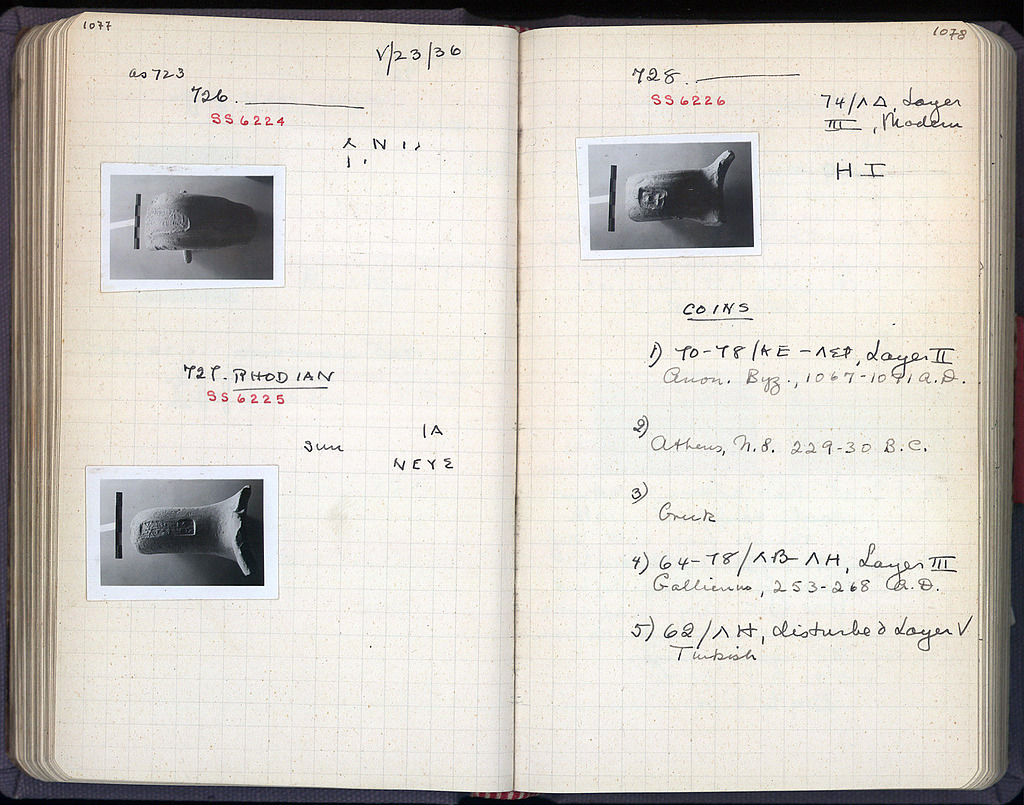 1077
V/23/36
as 723
726.
SS 6224
727. RHODIAN
SS 6225
IA
Sun
ΝΕΥΣ
1078
728.
SS 6226
74/ΛΔ, Layer
III, Modern
H I
COINS
1) 70-78/ΛΕ-ΛΣΤ, Layer II
Anon. Byz., 1067-1071 A.D.
2)
Athens, N.S. 229-30 B.C.
3)
Greek
4) 64-78/ΛΒ-ΛΗ, Layer III
Gallienus, 253-268 A.D.
5) 62/ΛΗ, disturbed Layer V
Turkish